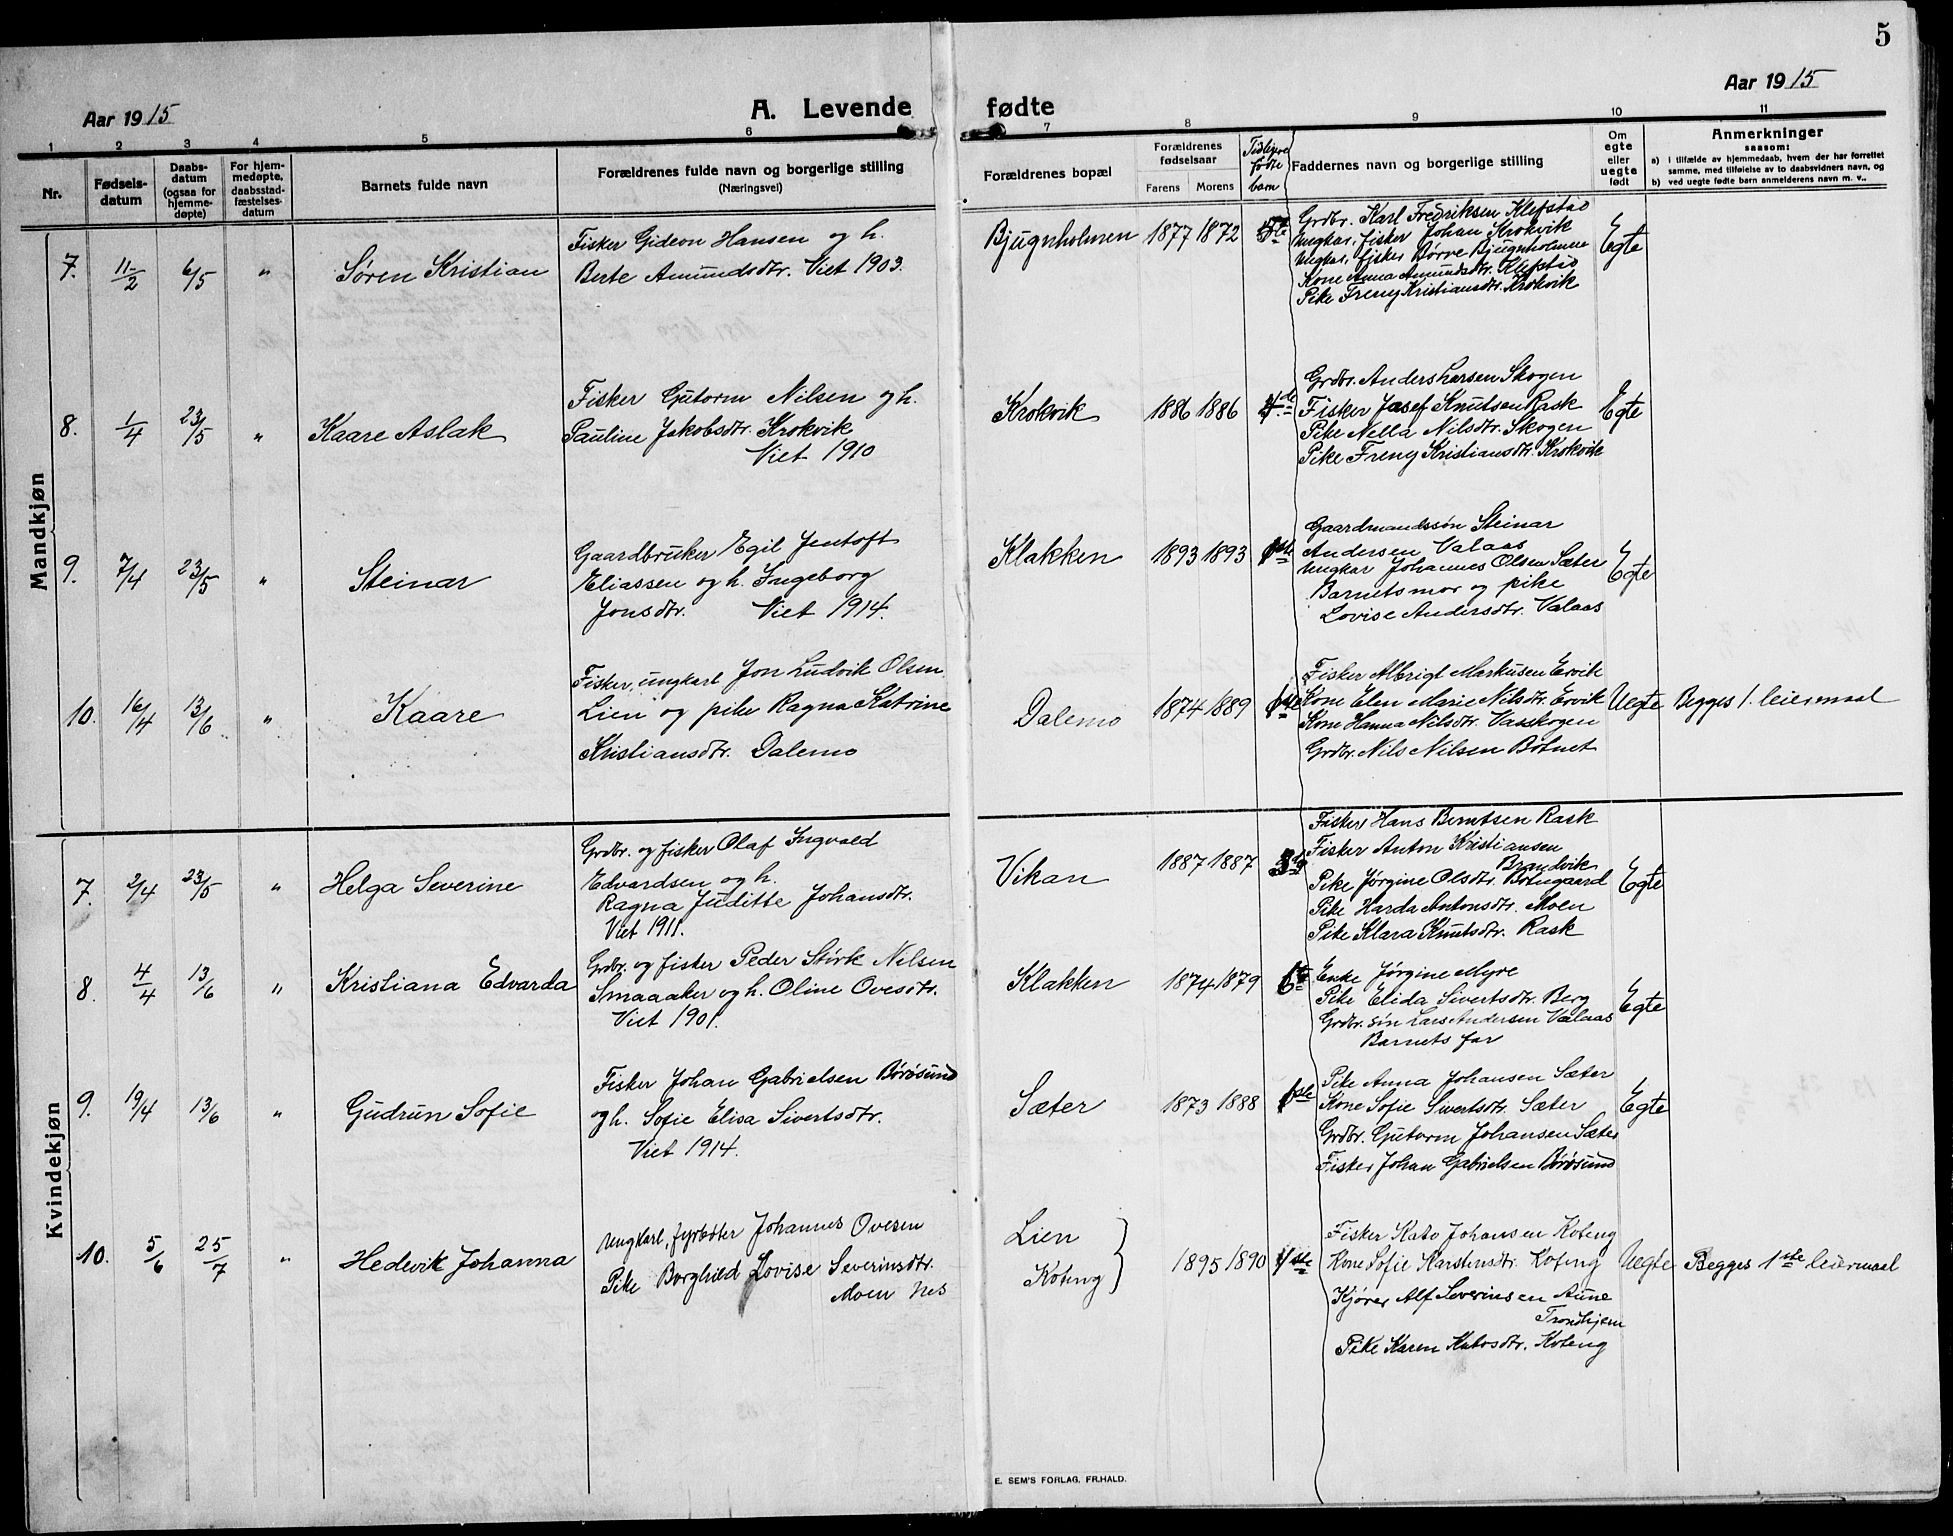 5
Aar 1915
A. Levende fødte
Aar 1915
1 2 3 4 5 6 7 8 9 10 11
Nr.
Fødsels-
datum
Daabs-
datum
(ogsaa for
hjemme-
døpte)
For hjem-
medøpte,
daabsstad-
fæstelses-
datum
Barnets fulde navn
Forældrenes fulde navn og borgerlige stilling
(Næringsvei)
Forældrenes bopæl
Forældrenes
fødselsaar
Farens Morens
Tidligere
fødte
barn
Faddernes navn og borgerlige stilling
Om
egte
eller
uegte
født
Anmerkninger
saasom:
a) i tilfælde av hjemmedaab, hvem der har forrettet
samme, med tilføielse av to daabsvidners navn, og
b) ved uegte fødte barn anmelderens navn m. v..
Mandkjøn
7. 11/2 6/5 " Søren Kristian
Fisker Gideon Hansen og h.
Berte Amundsdtr. Viet 1903.
Bjugnholmen 1877 1872
Grdbr. Karl Fredriksen Klefstad
Ungkar, fisker Johan Krokvik
Ungkar, fisker Børve Bjugnholmen
Kone Anna Amundsdtr. Klefstad
Pike Freny Kristiansdtr. Krokvik
Egte
8. 1/4 23/5 " Kaare Aslak
Fisker Gutorm Nilsen og h.
Pauline Jakobsdtr. Krokvik
Viet 1910
Krokvik 1886 1886
Grdbr. Anders Larsen Skogen
Fisker Josef Knutsen Rask
Pike Nella Nilsdtr. Skogen
Pike Freny Kristiansdtr. Krokvik
Egte
9. 7/4 23/5 " Steinar
Gaardbruker Egil Jentoft
Eliassen og h. Ingeborg
Jonsdtr. Viet 1914.
Klakken 1893 1893 1ste
Gaardmandssøn Steinar
Andersen Valaas
Ungkar Johannes Olsen Sæter
Barnets mor og pike
Lovise Andersdtr. Valaas
Egte
10. 16/4 13/6 " Kaare
Fisker, ungkarl Jon Ludvik Olsen
Lien og pike Ragna Katrine
Kristiansdtr. Dalemo
Dalemo 1874 1889 1ste
Fisker Albrigt Markusen Ervik
Kone Elen Marie Nilsdtr. Ervik
Kone Hanna Nilsdtr. Vasskogen
Grdbr. Nils Nilsen Botnet
Uegte Begges 1. leiermaal
Kvindekjøn
7. 2/4 23/5 " Helga Severine
Grdbr. og fisker Olaf Ingvald
Edvardsen og h.
Ragna Juditte Johansdtr.
Viet 1911.
Vikan 1887 1887
Fisker Hans Berntsen Rask
Fisker Anton Kristiansen
Brandvik
Pike Jørgine Olsdtr. Botngaard
Pike Harda Antonsdtr. Moen
Pike Klara Knutsdtr. Rask
Egte
8. 4/4 13/6 " Kristiana Edvarda
Grdbr. og fisker Peder Størk Nilsen
Smaaaker og h. Oline Ovesdtr.
Viet 1901.
Klakken 1874 1879
Enke Jørgine Myre
Pike Elida Sivertsdtr. Berg
Grdbr. søn Lars Andersen Valaas
Barnets far
Egte
9. 19/4 13/6 " Gudrun Sofie
Fisker Johan Gabrielsen Børøsund
og h. Sofie Elisa Sivertsdtr.
Viet 1914.
Sæter 1873 1888 1ste
Pike Anna Johansen Sæter
Kone Sofie Sivertsdtr. Sæter
Grdbr. Gutorm Johansen Sæter
Fisker Johan Gabrielsen Børøsund
Egte
10. 5/6 25/7 " Hedevik Johanna
Ungkarl, fyrbøter Johannes Ovesen
Pike Borghild Lovise Severinsdtr.
Moen Nes
Lien
Koteng
1895 1890 1ste
Fisker Kato Johansen Koteng
Kone Sofie Karstensdtr. Koteng
Kjører Alf Severinsen Aune
Trondhjem
Pike Karen Katosdtr. Koteng
Uegte Begges 1ste leiermaal
E. SEM'S FORLAG, FR.HALD.